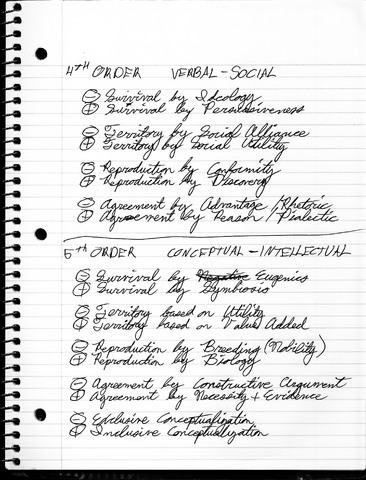 4th ORDER VERBAL - SOCIAL
⊖ Survival by Ideology
⊕ Survival by Persuasiveness
⊖ Territory by Social Alliance
⊕ Territory by Social Utility
⊖ Reproduction by Conformity
⊕ Reproduction by Discovery
⊖ Agreement by Advantage / Rhetoric
⊕ Agreement by Reason / Dialectic
5th ORDER CONCEPTUAL - INTELLECTUAL
⊖ Survival by Negative Eugenics
⊕ Survival by Symbiosis
⊖ Territory based on Utility
⊕ Territory based on Value Added
⊖ Reproduction by Breeding (Nobility)
⊕ Reproduction by Biology
⊖ Agreement by Constructive Argument
⊕ Agreement by Necessity + Evidence
⊖ Exclusive Conceptualization
⊕ Inclusive Conceptualization